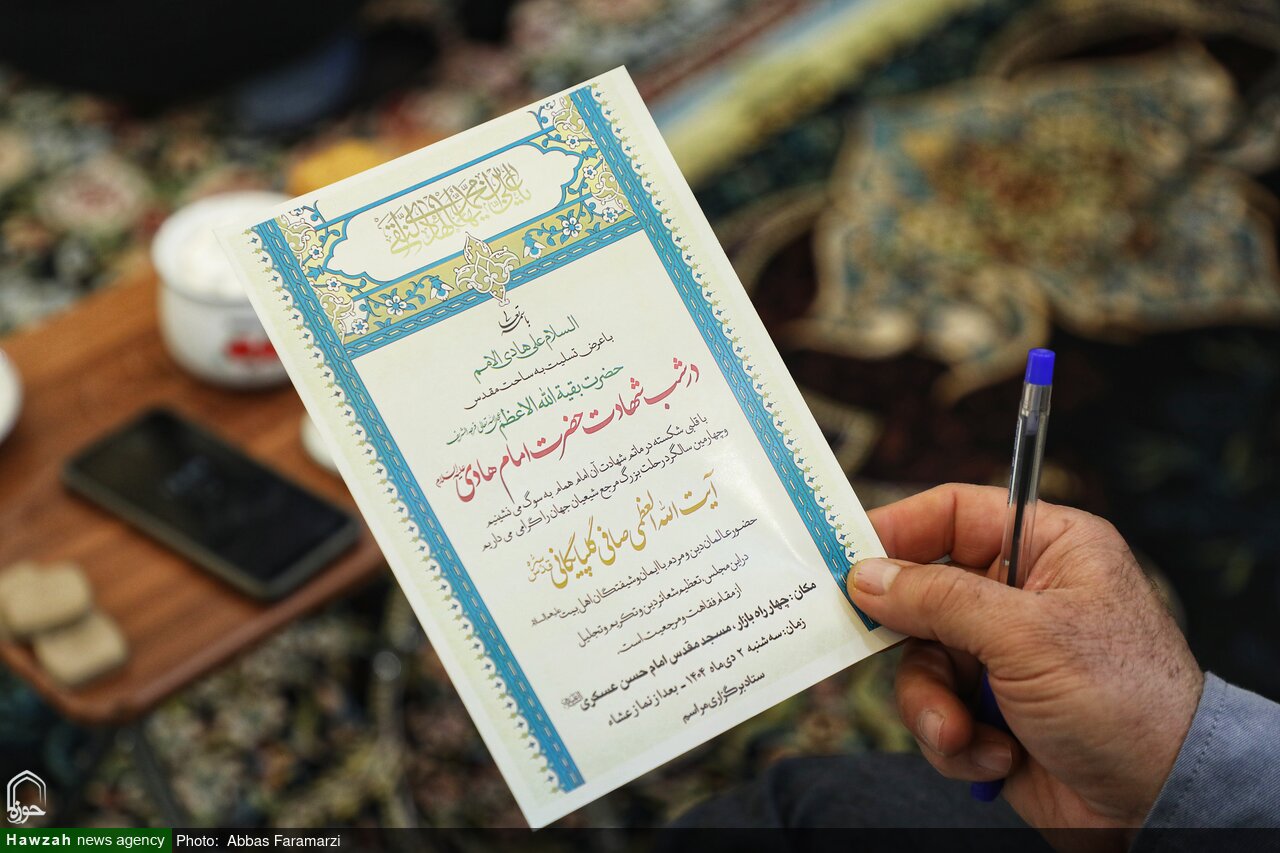 السلام علی هادی الامم
با عرض تسلیت به ساحت مقدس
حضرت بقیة الله الاعظم
در شب شهادت حضرت امام هادی علیه السلام
با قلبی شکسته در ماتم شهادت آن امام همام، به سوگ می نشینیم
و چهارمین سالگرد رحلت بزرگ مرجع شیعیان جهان را گرامی می داریم
آیت الله العظمی صافی گلپایگانی قدس سره
حضور عالمان دین و مردم با ایمان و شیفتگان اهل بیت
در این مجلس، تعظیم شعائر دین و تکریم و تجلیل
از مقام فقاهت و مرجعیت است.
مکان: چهار راه بازار، مسجد مقدس امام حسن عسکری
زمان: سه شنبه ۲ دی ماه ۱۴۰۴ - بعد از نماز عشاء
ستاد برگزاری مراسم
حوزه
Hawzah news agency
Photo: Abbas Faramarzi